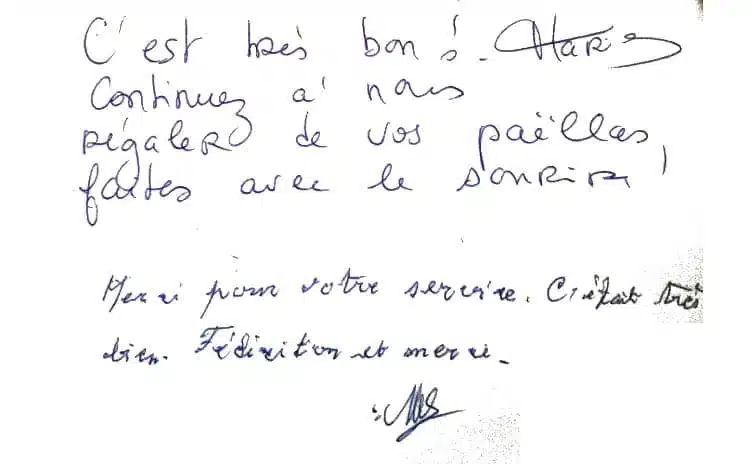 C'est très bon !. Marie
Continuez à nous
régaler de vos paëllas,
faites avec le sourire !
Merci pour votre service. C'était très
bien. Félicitation et merci.